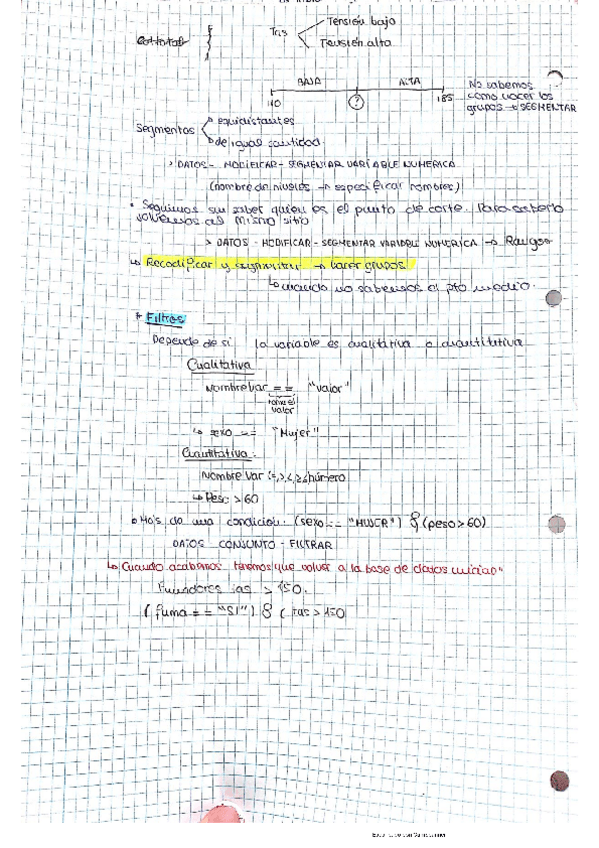 Tensión bajo
Tas
Tensión alta
BAJA ALTA
110 ? 185
No sabemos
como hacer los
grupos → SEGMENTAR
Segmentos
equidistantes
de igual cantidad
> DATOS - MODIFICAR - SEGMENTAR VARIABLE NUMERICA
(nombre de niveles → especificar nombres)
Seguimos sin saber quien es el punto de corte. Para saberlo
volvemos al mismo sitio
> DATOS - MODIFICAR - SEGMENTAR VARIABLE NUMERICA → Rangos
↳ Recodificar y segmentar → hacer grupos
↳ cuando no sabemos el pto medio.
* Filtros
Depende de si la variable es cualitativa o cuantitativa
Cualitativa
Nombrevar == "valor"
valor
↳ sexo == "Mujer"
Cuantitativa:
Nombre Var número
↳ Peso >60
Más de una condición: (sexo == "MUJER") & (peso>60)
DATOS CONJUNTO - FILTRAR
↳ Cuando acabamos tenemos que volver a la base de datos inicial"
Fumadores tas > 150.
(fuma == "SI") & (tas > 150